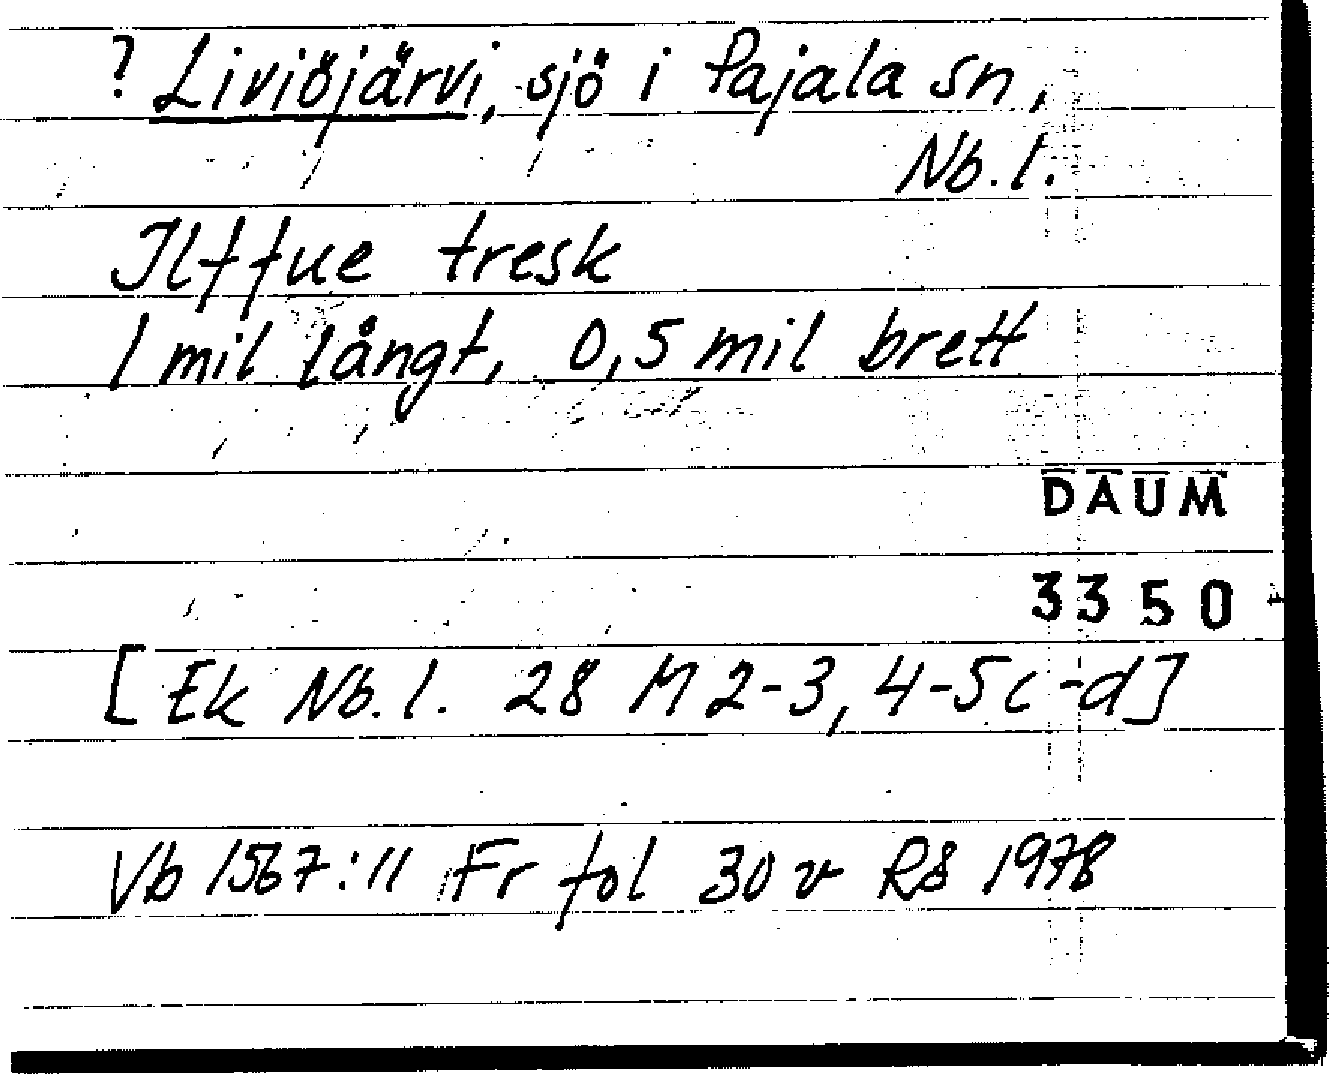 ? Liviöjärvi, sjö i Pajala sn,
Nb.l.
Ilffue tresk
1 mil långt, 0,5 mil brett
DAUM
3350
[Ek Nb.l. 28 M 2-3, 4-5 c-d]
Vb 1567:11 Fr fol 30 v RS 1978